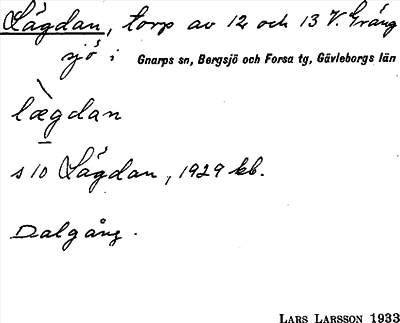 Lågdan, torp av 12 och 13 V. Gräng
sjö i Gnarps sn, Bergsjö och Forsa tg, Gävleborgs län
lægdan
s 10 Lågdan, 1929 kb.
Dalgång.
LARS LARSSON 1933